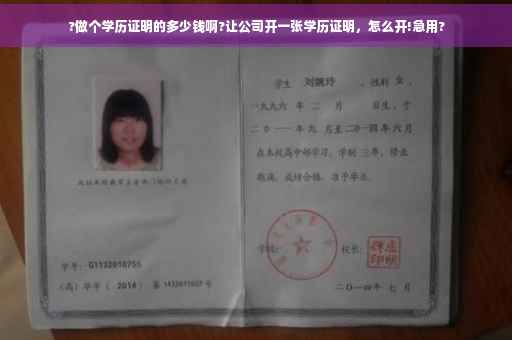 ?做个学历证明的多少钱啊?让公司开一张学历证明，怎么开!急用?
学生 刘婉玲 ，性别 女 ，
一九九六 年 二 月 日生，于
二0一一年九 月至二0一四年六月
在本校高中部学习，学制 三年，修业
期满，成绩合格，准予毕业。
学校：
校长：
学号：G1132010755
（高）毕字（ 2014 ）第 1432011037 号
二〇一四年 七 月